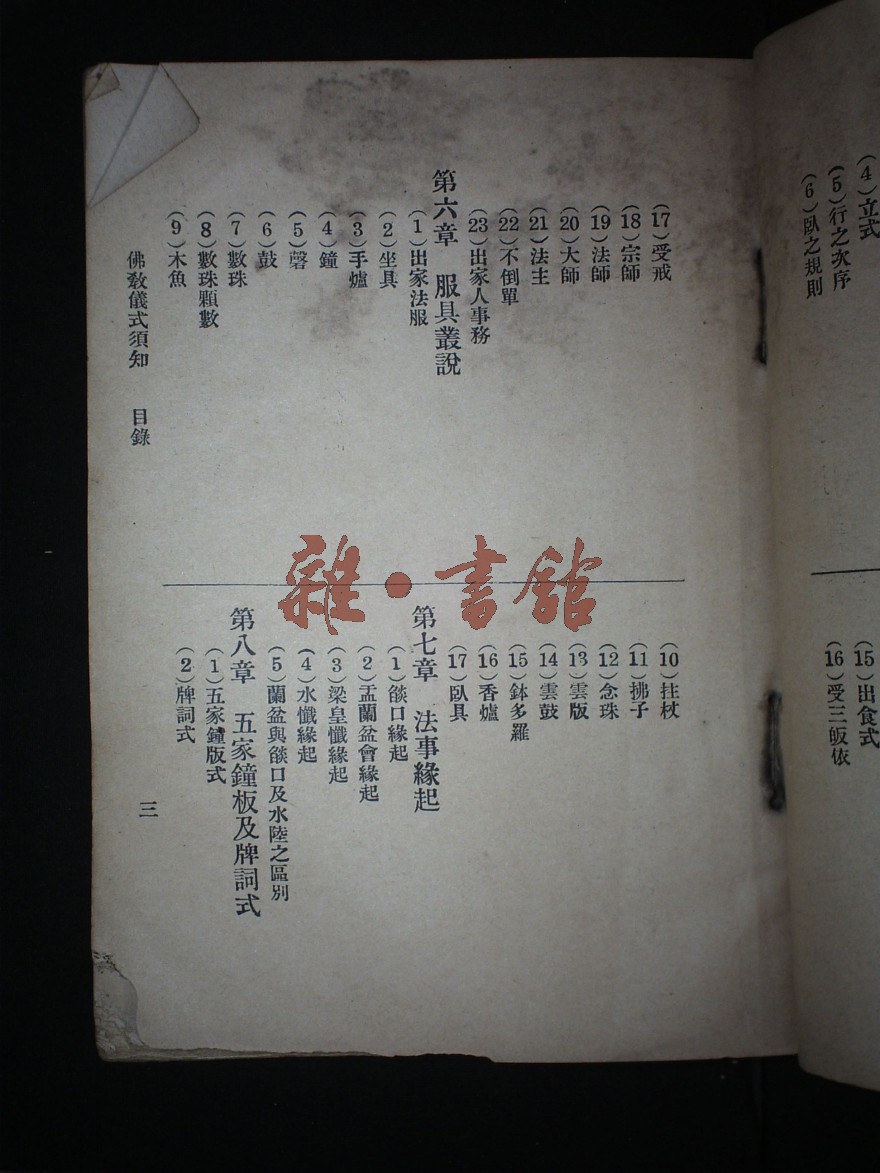 (4)立式
(5)行之次序
(6)臥之規則
(15)出食式
(16)受三皈依
(17)受戒
(18)宗師
(19)法師
(20)大師
(21)法主
(22)不倒單
(23)出家人事務
第六章 服具叢說
(1)出家法服
(2)坐具
(3)手爐
(4)鐘
(5)磬
(6)鼓
(7)數珠
(8)數珠顆數
(9)木魚
(10)拄杖
(11)拂子
(12)念珠
(13)雲版
(14)雲鼓
(15)鉢多羅
(16)香爐
(17)臥具
第七章 法事緣起
(1)燄口緣起
(2)盂蘭盆會緣起
(3)梁皇懺緣起
(4)水懺緣起
(5)蘭盆與燄口及水陸之區別
第八章 五家鐘板及牌詞式
(1)五家鐘版式
(2)牌詞式
佛教儀式須知 目錄
三
雜·書館